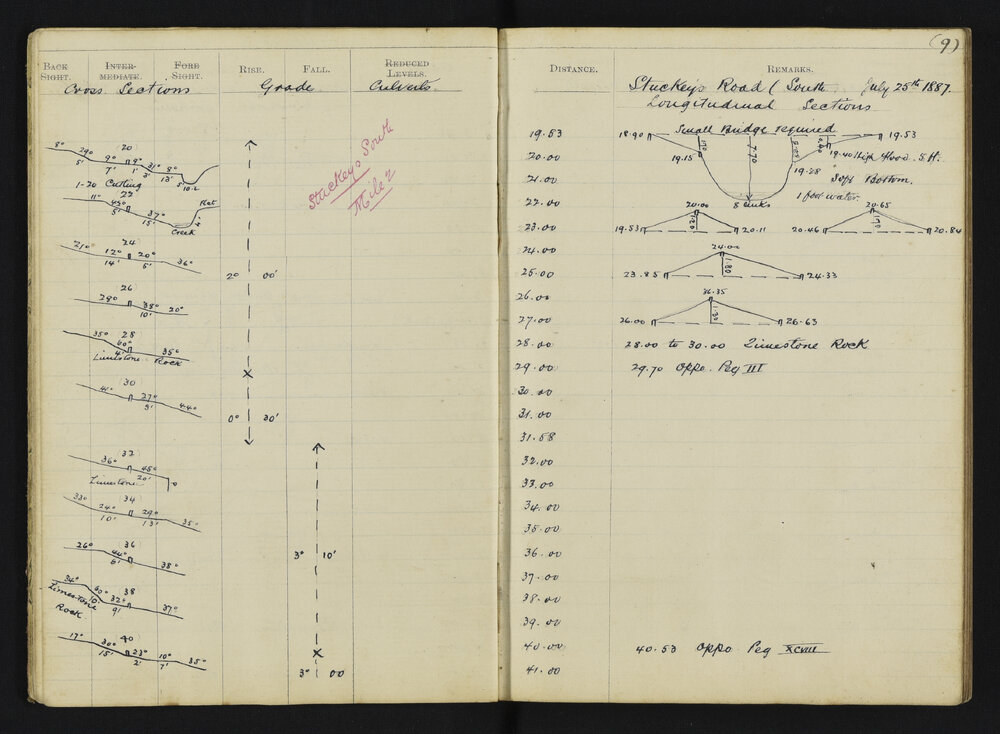 BACK SIGHT. INTER-MEDIATE. FORE SIGHT. RISE. FALL. REDUCED LEVELS.
Cross Sections Grade Culverts
Stuckeys South
Mile 2
8° 29° 20 9° 9° 31° 8°
5' 7' 1' 3' 13' 5' 10.2
1-20 Cutting
22
11° 45° 37° Flat
5' 15' 4'
Creek
24
21° 12° 20° 36°
14' 5'
2° 00'
26
28° 38° 20°
10'
35° 28
60° 35°
4'
Limestone Rock
30
41° 27° 44°
9'
0° 30'
32
36° 48°
Limestone 20'
33° 34
24° 29° 35°
10' 13'
26° 36
44° 38°
6'
3° 10'
34° 60° 38
10' 32° 37°
9'
Limestone
Rock
17° 40
30° 23° 10° 35°
15' 2' 7'
3° 00
(9)
DISTANCE. REMARKS.
Stuckeys Road (South July 25th 1887.
Longitudinal Sections
19.53
20.00
21.00
22.00
23.00
24.00
25.00
26.00
27.00
28.00
29.00
30.00
31.00
31.58
32.00
33.00
34.00
35.00
36.00
37.00
38.00
39.00
40.00
41.00
18.90 Small Bridge required 19.53
19.15 7.70 19.28 19.40 High flood. 5 ft.
Soft Bottom.
8 links 1 foot water
20.00 20.65
19.53 1.20 20.11 20.46 1.70 20.84
24.00
23.85 1.80 24.33
26.35
26.00 1.20 26.63
28.00 to 30.00 Limestone Rock
29.70 Oppo. Peg III
40.53 Oppo Peg XCVIII